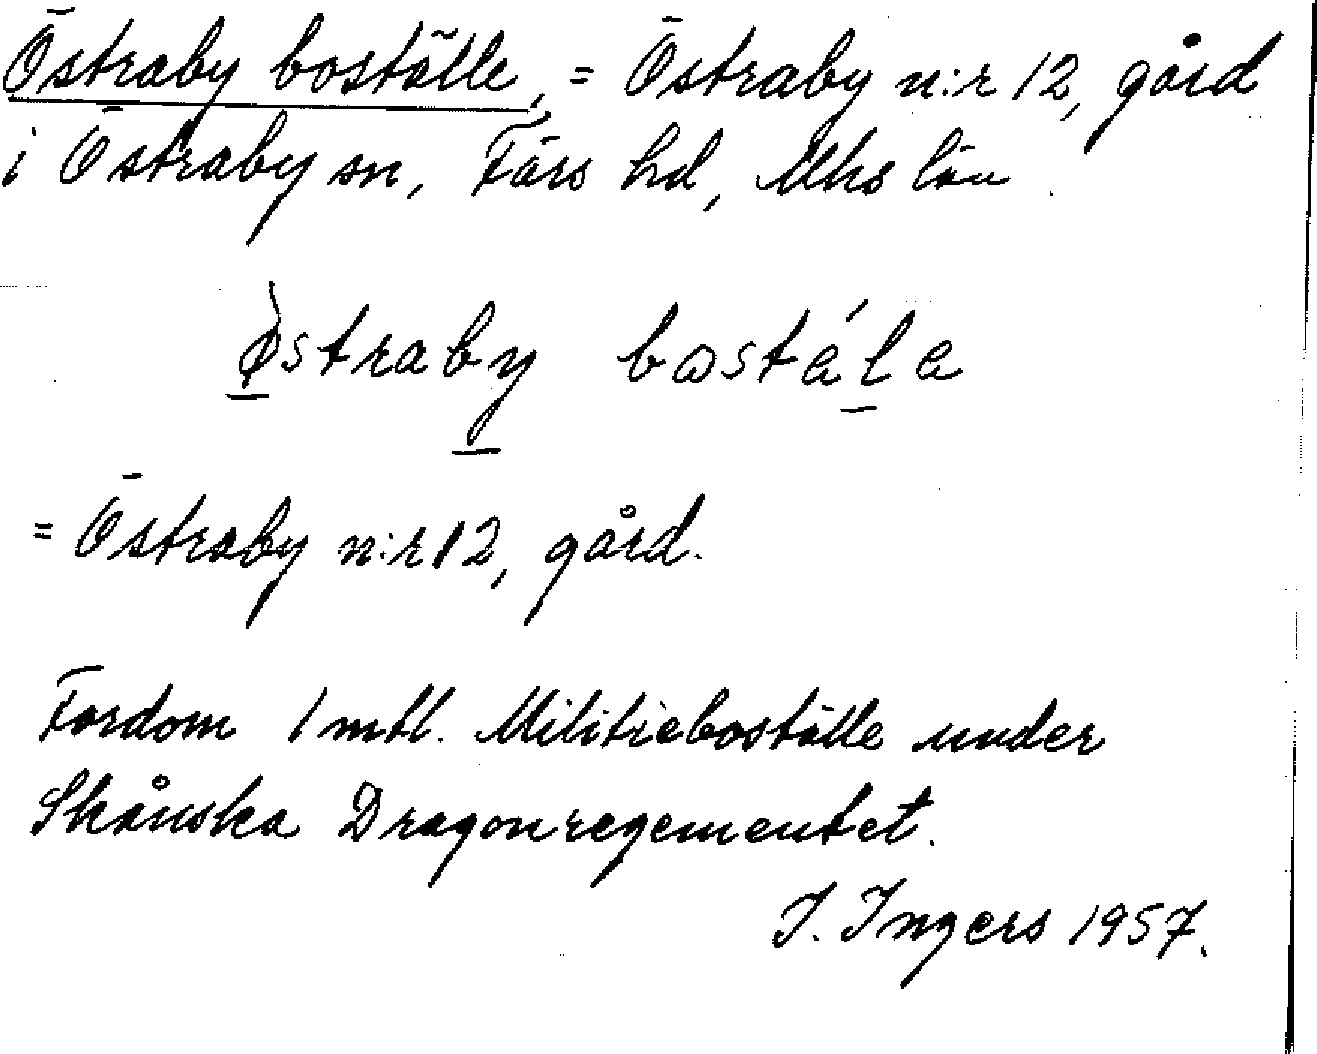 Östraby boställe, = Östraby n:r 12, gård
i Östraby sn, Färs hd, Mhs län.
= Östraby n:r 12, gård.
Fordom 1 mtl. Militieboställe under
Skånska Dragonregementet.
I. Ingers 1957.